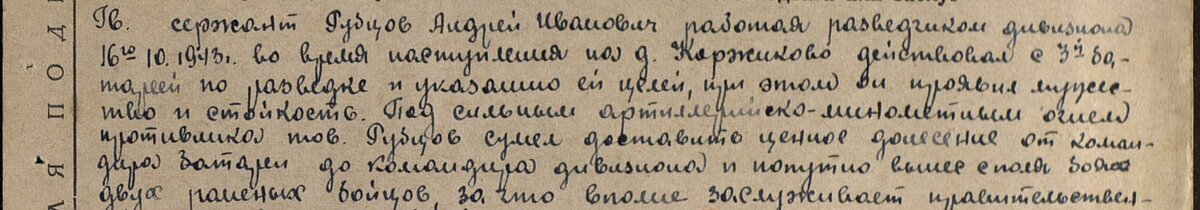 Гв. сержант Рубцов Андрей Иванович работая разведчиком дивизиона
16го 10. 1943г. во время наступления на д. Коржиково действовал с 3й ба-
тареей по разведке и указанию ей целей, при этом он проявил мужес-
тво и стойкость. Под сильным артиллерийско-минометным огнем
противника тов. Рубцов сумел доставить ценное донесение от коман-
дира батареи до командира дивизиона и попутно вынес с поля боя
двух раненых бойцов, за что вполне заслуживает правительствен-